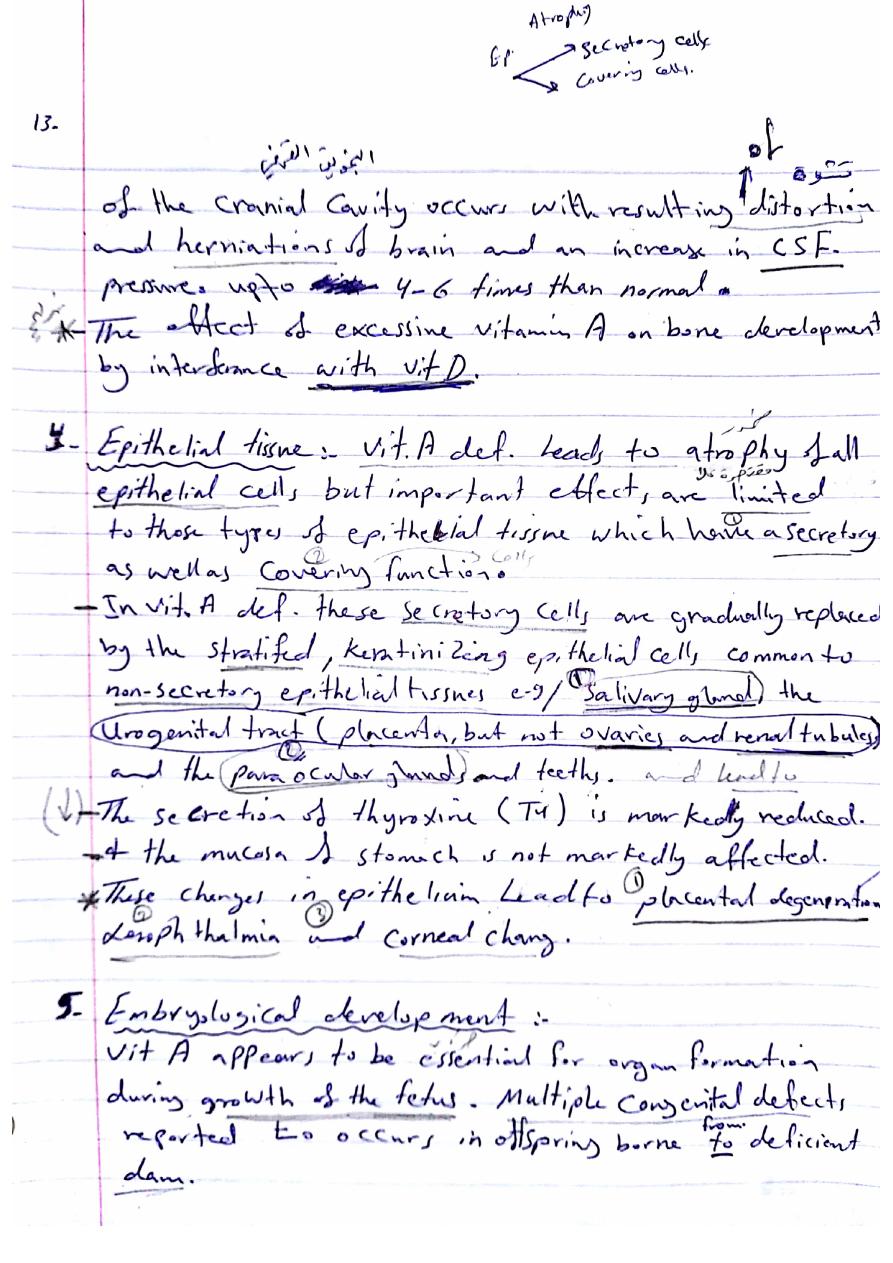 Atrophy
Ep. secretory cells
Covering cells.
13-
التجويف القحفي
of
تشوه
of the cranial cavity occurs with resulting distortion
and herniations of brain and an increase in CSF.
pressure. upto 4-6 times than normal.
* - The effect of excessine vitamin A on bone development
by interferance with vit D.
4- Epithelial tissue :- Vit. A def. Leads to atrophy of all
epithelial cells but important effects are limited
to those types of epithelial tissue which have ① a secretory
as well as ② covering function. cells
- In vit. A def. these secretory cells are gradually replaced
by the stratified, keratinizing epithelial cells common to
non-secretory epithelial tissues e.g/ ① (Salivary gland) the
Urogenital tract (placenta, but not ovaries and renal tubules)
and the ② (para ocular glands) and teeths. and lead to
(↓) - The secretion of thyroxine (T4) is markedly reduced.
- & the mucosa of stomach is not markedly affected.
* These changes in epithelium Lead to ① placental degeneration
② Xerophthalmia ③ and corneal chang.
5- Embryological development :-
Vit A appears to be essential for organ formation
during growth of the fetus. Multiple congenital defects
reported to occurs in offspring borne to from deficient
dam.